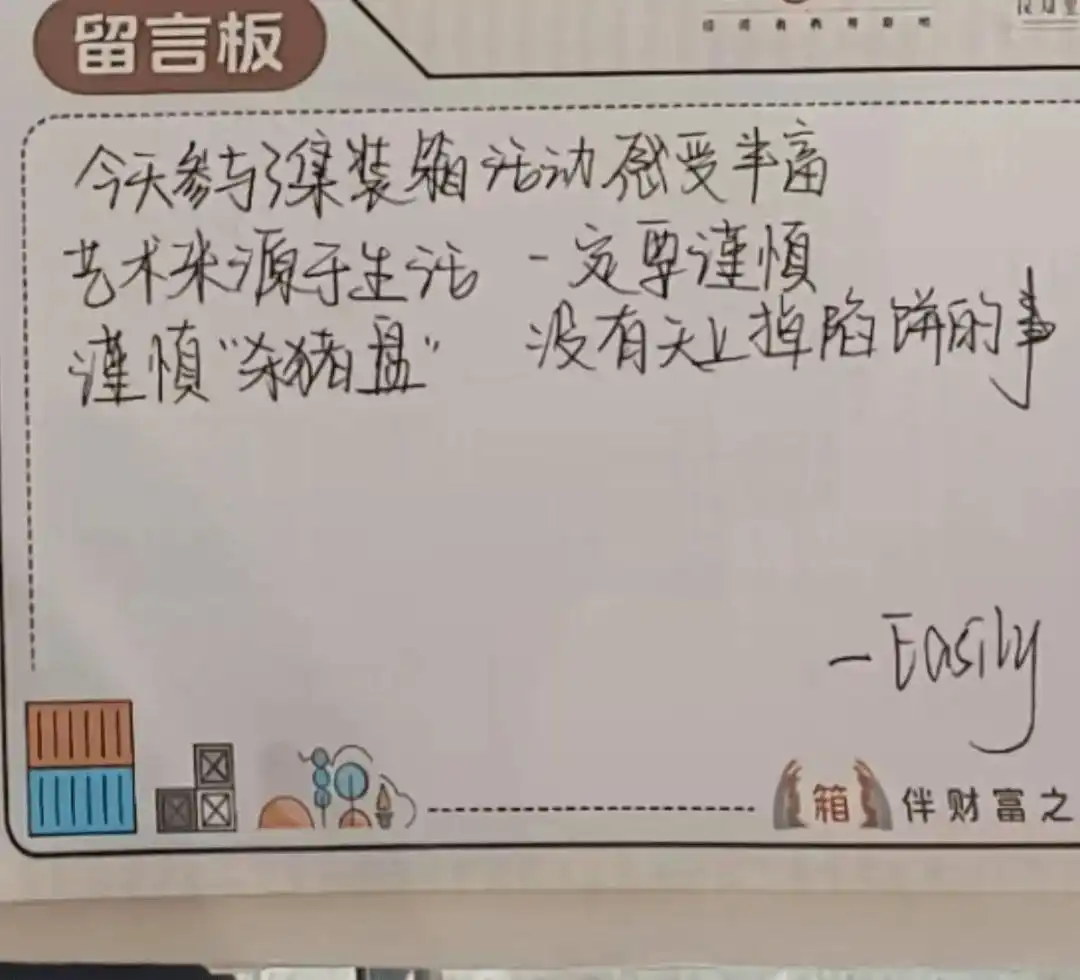 留言板
今天参与了集装箱活动感受丰富
艺术来源于生活 一定要谨慎
谨慎"杀猪盘" 没有天上掉陷饼的事
—Easily
箱伴财富之